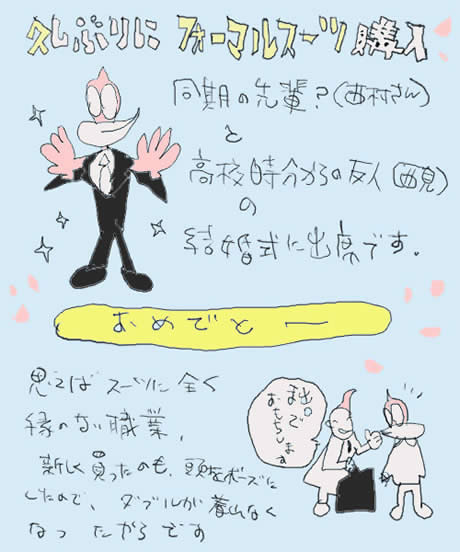 久しぶりに フォーマルスーツ 購入
同期の先輩?(西村さん)
と
高校時分からの友人(西見)
の
結婚式に出席です。
おめでとー
思えば スーツに全く
縁のない職業、
新しく買ったのも、頭をボーズに
したので、ダブルが着れなく
なったからです